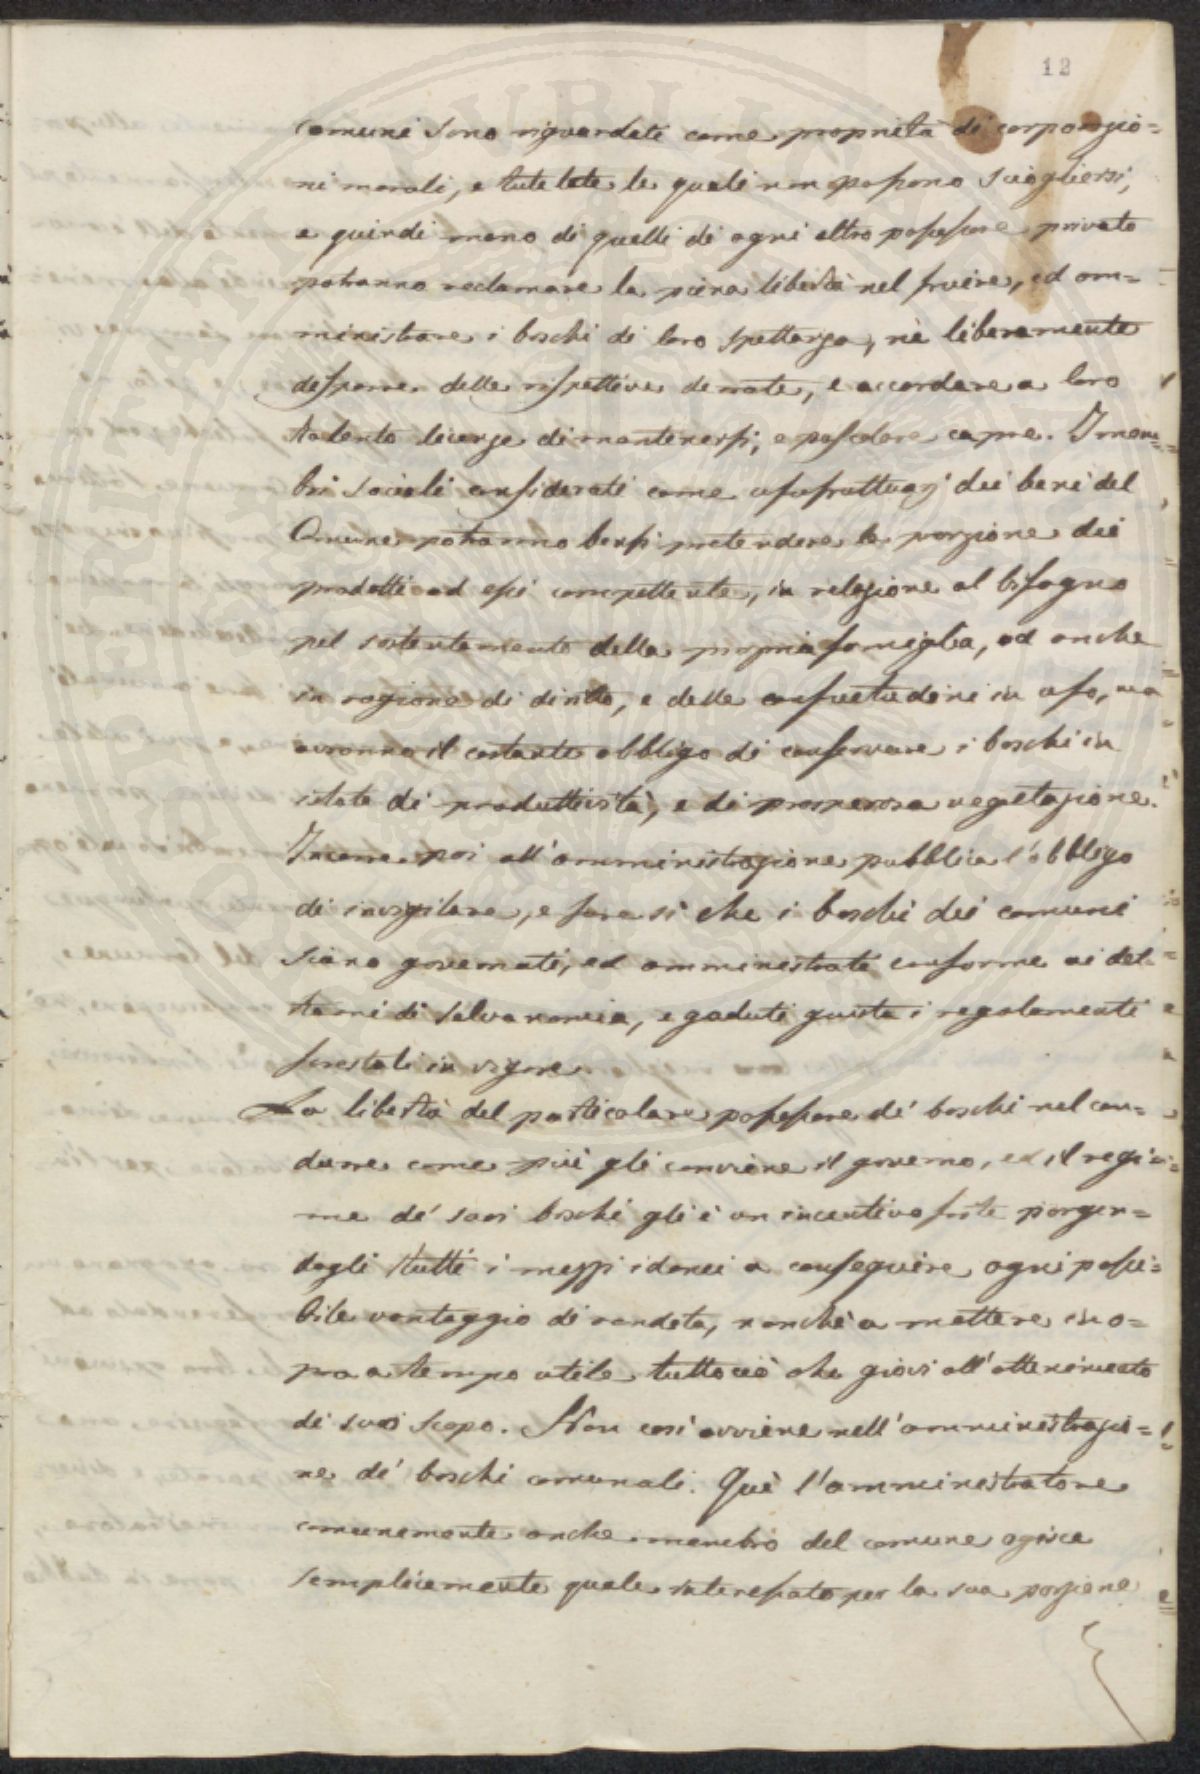 12
comuni sono riguardati come proprietà di corporazio=
ni morali, e tutelate le quali non possono sciogliersi,
e quindi meno di quelli di ogni altro possessore privato
potranno reclamare la piena libertà nel fruire, ed am=
ministrare i boschi di loro spettanza, nè liberamente
disporre delle rispettive derrate, e accordare a loro
talento licenze di mantenersi, e pascolare capre. I mem=
bri sociali considerati come usufruttuarj dei beni del
Comune potranno bensi pretendere la porzione dei
prodotti ad essi competente, in relazione al bisogno
pel sostentamento della propria famiglia, ed anche
in ragione di diritto, e delle consuetudini in uso, ma
avranno il costante obbligo di conservare i boschi in
istato di produttività, e di prosperosa vegetazione.
Incorre poi all'amministrazione pubblica l'obbligo
di invigilare, e fare sì che i boschi dei comuni
siano governati, ed amministrati conforme ai det=
tami di selvanomia, e goduti giusta i regolamenti
forestali in vigore.
La libertà del particolare possessore de' boschi nel con=
durre come più gli conviene il governo, ed il regi=
me de' suoi boschi gli è un incentivo forte porgen=
dogli tutti i mezzi idonei a conseguire ogni possi=
bile vantaggio di rendita, nonchè a mettere in o=
pra a tempo utile tutto ciò che giovi all'ottenimento
di suo scopo. Non così avviene nell'amministrazio=
ne de' boschi comunali. Quì l'amministratore
comunemente anche membro del comune agisce
semplicemente quale interessato per la sua porzione